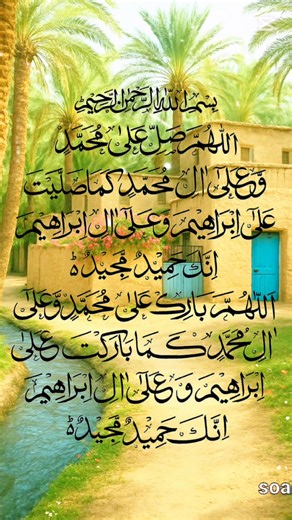 بِسْمِ اللهِ الرَّحْمٰنِ الرَّحِيْمِ
اَللّٰهُمَّ صَلِّ عَلٰى مُحَمَّدٍ
وَّعَلٰى اٰلِ مُحَمَّدٍ كَمَا صَلَّيْتَ
عَلٰى اِبْرَاهِيْمَ وَعَلٰى اٰلِ اِبْرَاهِيْمَ
اِنَّكَ حَمِيْدٌ مَّجِيْدٌ
اَللّٰهُمَّ بَارِكْ عَلٰى مُحَمَّدٍ وَّعَلٰى
اٰلِ مُحَمَّدٍ كَمَا بَارَكْتَ عَلٰى
اِبْرَاهِيْمَ وَعَلٰى اٰلِ اِبْرَاهِيْمَ
اِنَّكَ حَمِيْدٌ مَّجِيْدٌ
soa